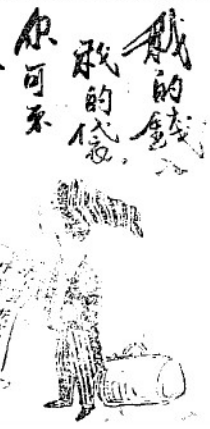 我的錢入
我的袋，
你可不